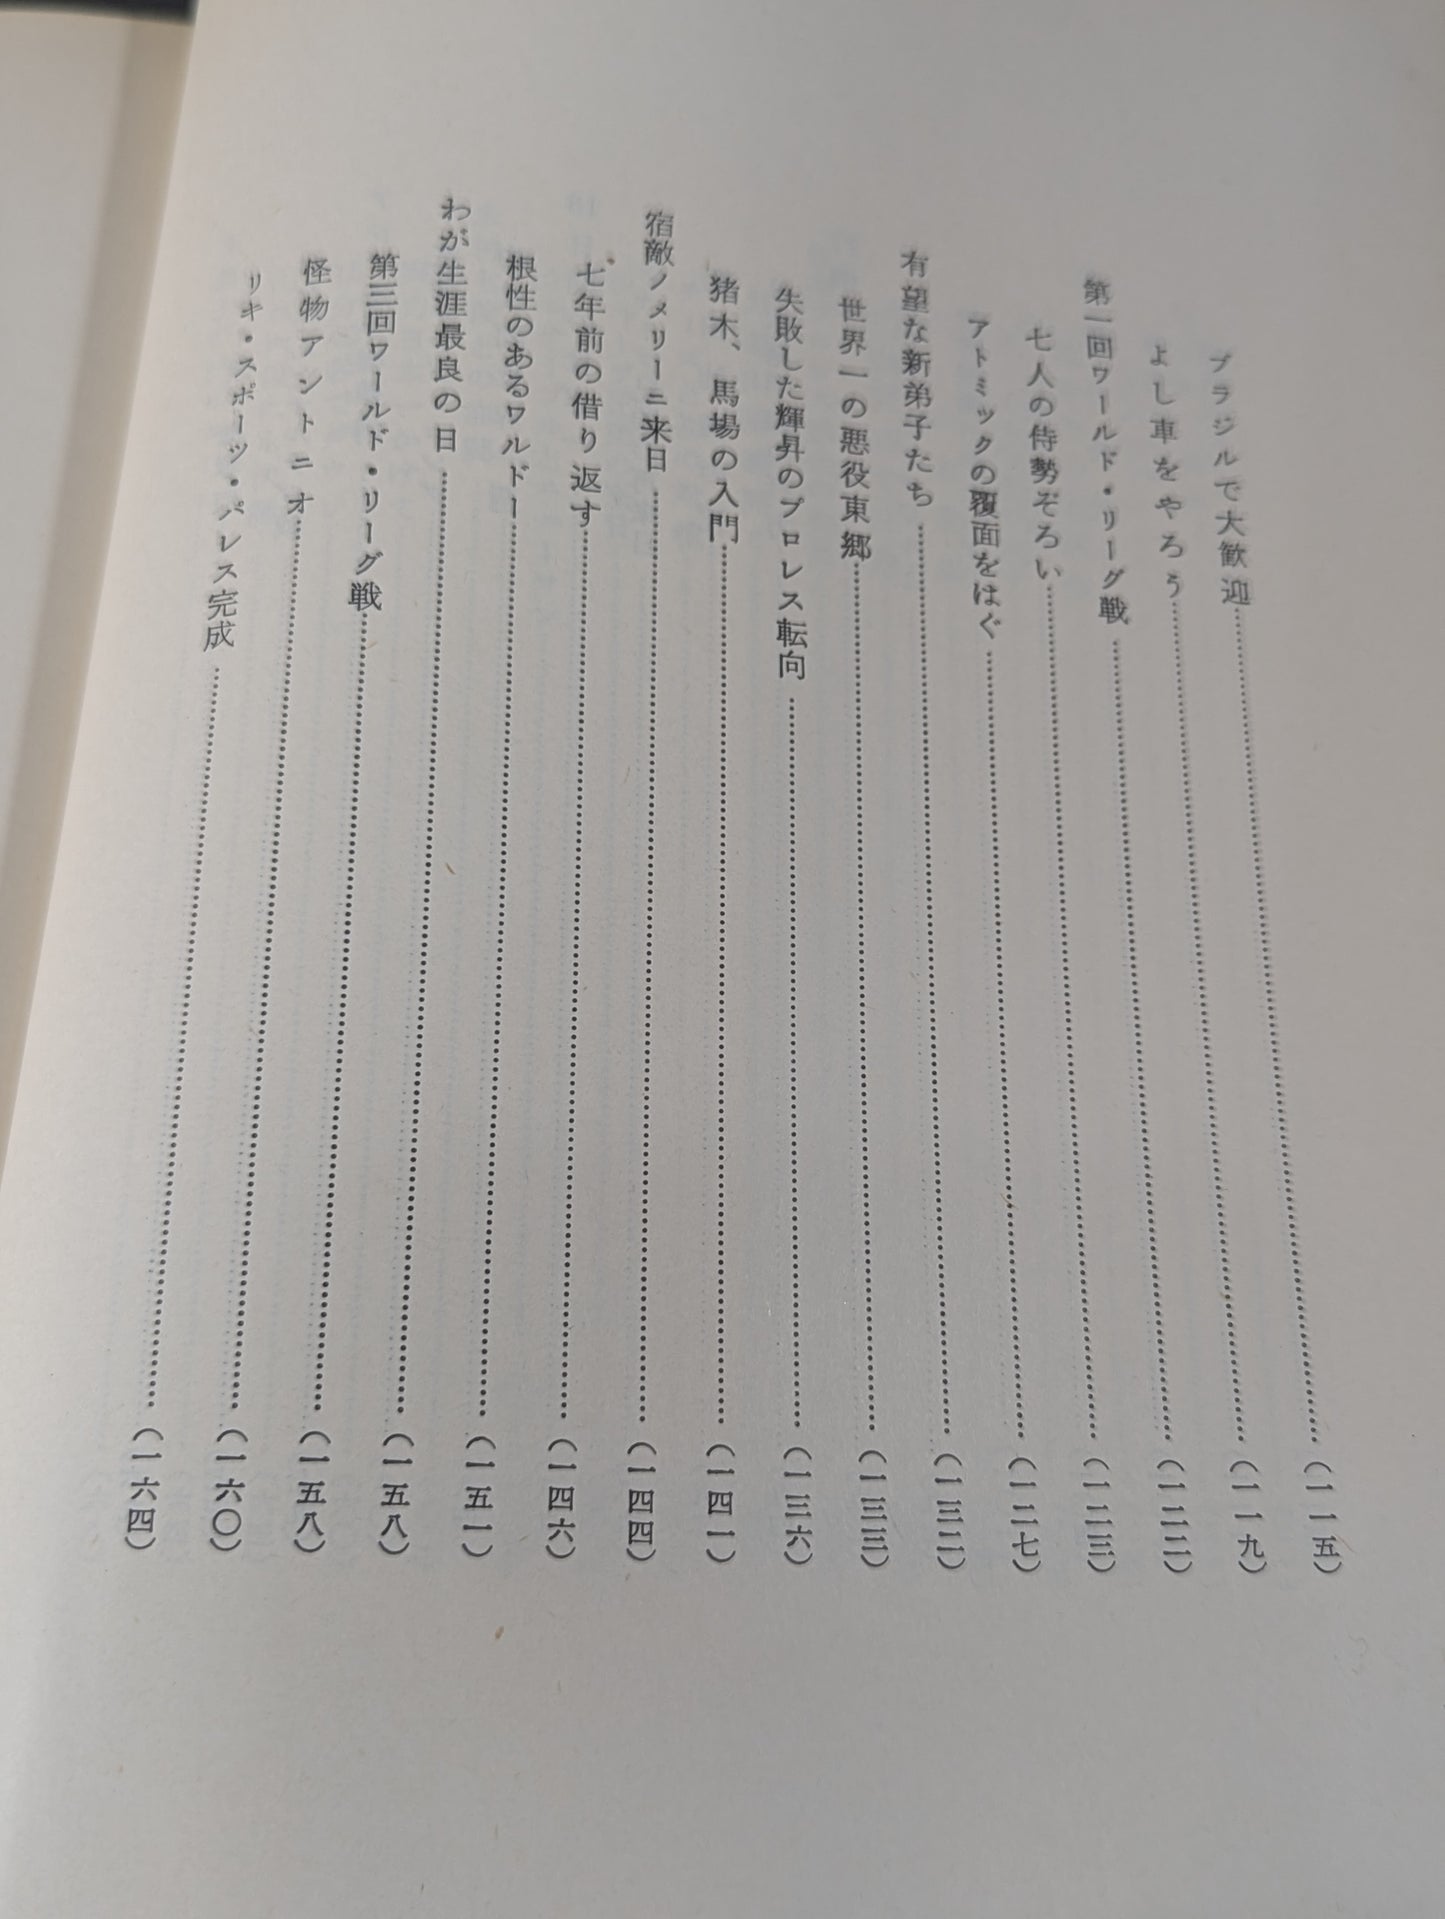 ブラジルで大歓迎……(一一五)
よし車をやろう……(一一九)
第一回ワールド・リーグ戦……(一二二)
七人の侍勢ぞろい……(一二三)
アトミックの覆面をはぐ……(一二七)
有望な新弟子たち……(一三二)
世界一の悪役東郷……(一三三)
失敗した輝昇のプロレス転向……(一三六)
猪木、馬場の入門……(一四一)
宿敵ノメリーニ来日……(一四四)
七年前の借り返す……(一四六)
根性のあるワルドー……(一五一)
わが生涯最良の日……(一五八)
第三回ワールド・リーグ戦……(一五八)
怪物アントニオ……(一六〇)
リキ・スポーツ・パレス完成……(一六四)